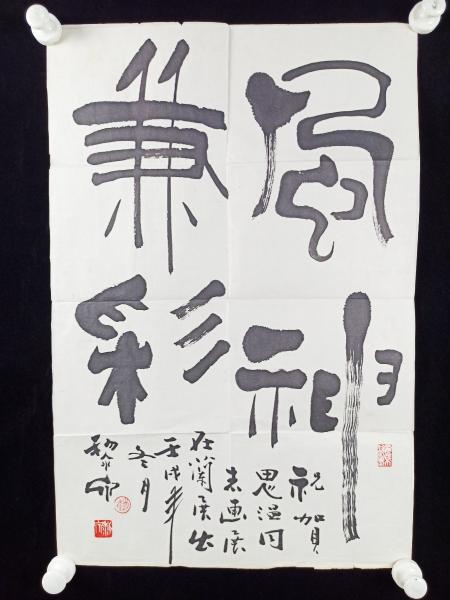 風神
兼彩
祝賀
思温同
志画展
在蘭展出
壬戌年
冬月
黎泉